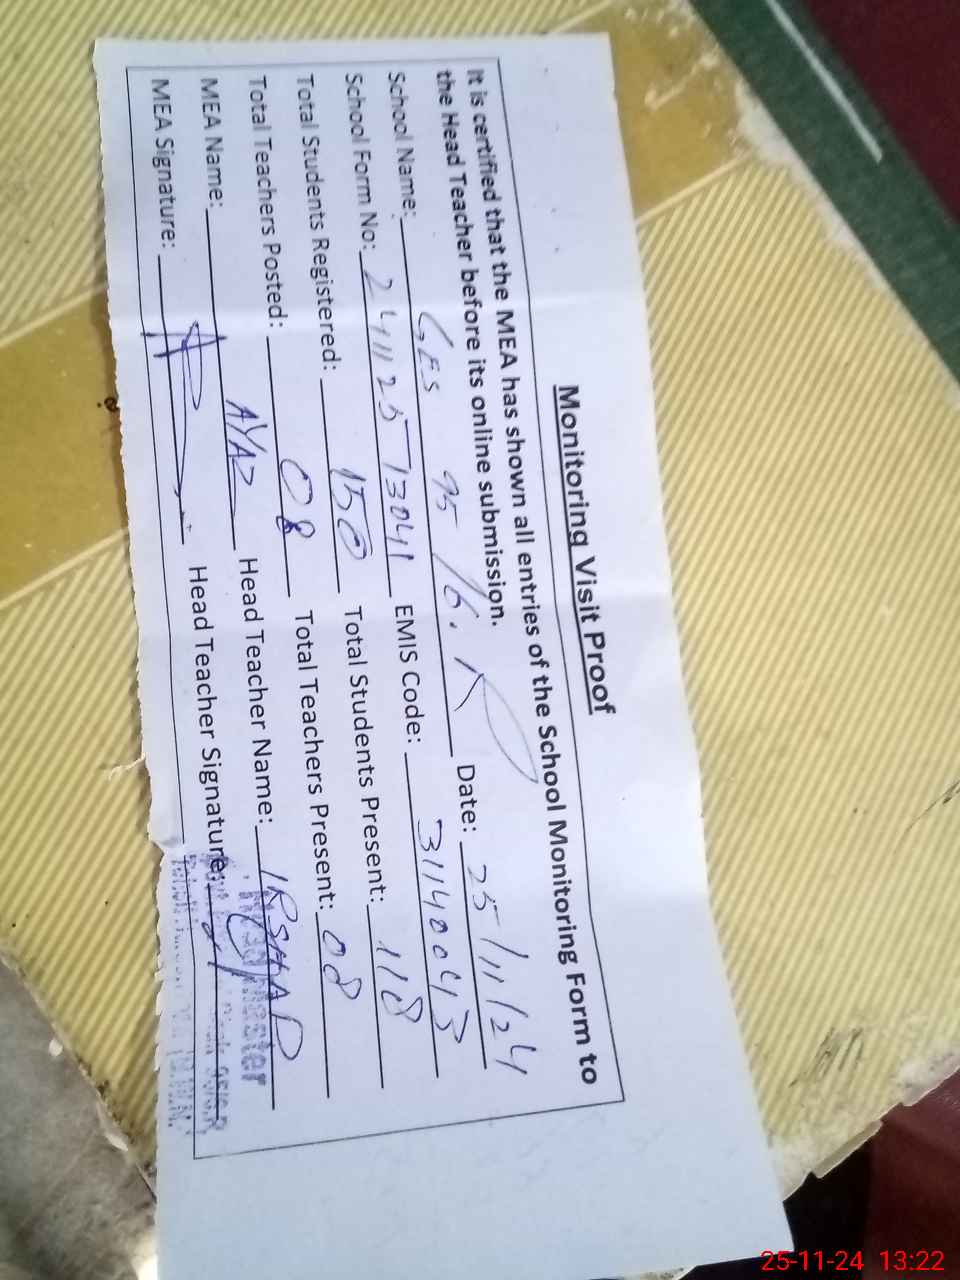 Monitoring Visit Proof
It is certified that the MEA has shown all entries of the School Monitoring Form to
the Head Teacher before its online submission.
School Name: GES 95/6.R Date: 25/11/24
School Form No: 24112513041 EMIS Code: 31140043
Total Students Registered: 150 Total Students Present: 118
Total Teachers Posted: 08 Total Teachers Present: 08
MEA Name: AYAZ Head Teacher Name: IRSHAD
MEA Signature: Head Teacher Signature:
Headmaster
95/6.R
25-11-24 13:22